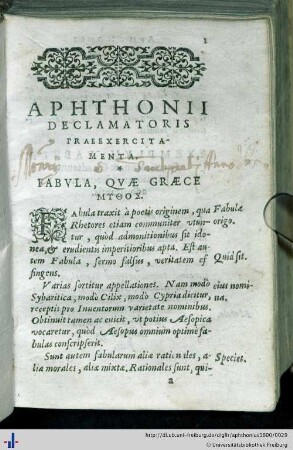 1
APHTHONII
DECLAMATORIS
PRAEEXERCITA-
MENTA.
FABVLA, QVÆ GRÆCE
ΜΥΘΟΣ.
FAbula traxit à poetis originem, qua Fabulæ
Rhetores etiam communiter vtun- origo.
tur, quòd admonitionibus sit ido-
nea, & erudientis imperitioribus apta. Est au-
tem Fabula, sermo falsus, veritatem ef Quid sit.
fingens.
Varias sortitur appellationes. Nam modò eius nomi
Sybaritica, modò Cilix, modò Cypria dicitur, na.
receptis pro Inuentorum varietate nominibus.
Obtinuit tamen ac euicit, vt potius Aesopica
vocaretur, quòd Aesopus omnium optimè fa-
bulas conscripserit.
Sunt autem fabularum aliæ rationales, a- Species.
liæ morales, aliæ mixtæ. Rationales sunt, qui-
a
http://dl.ub.uni-freiburg.de/diglit/aphthonius1600/0029
© Universitätsbibliothek Freiburg